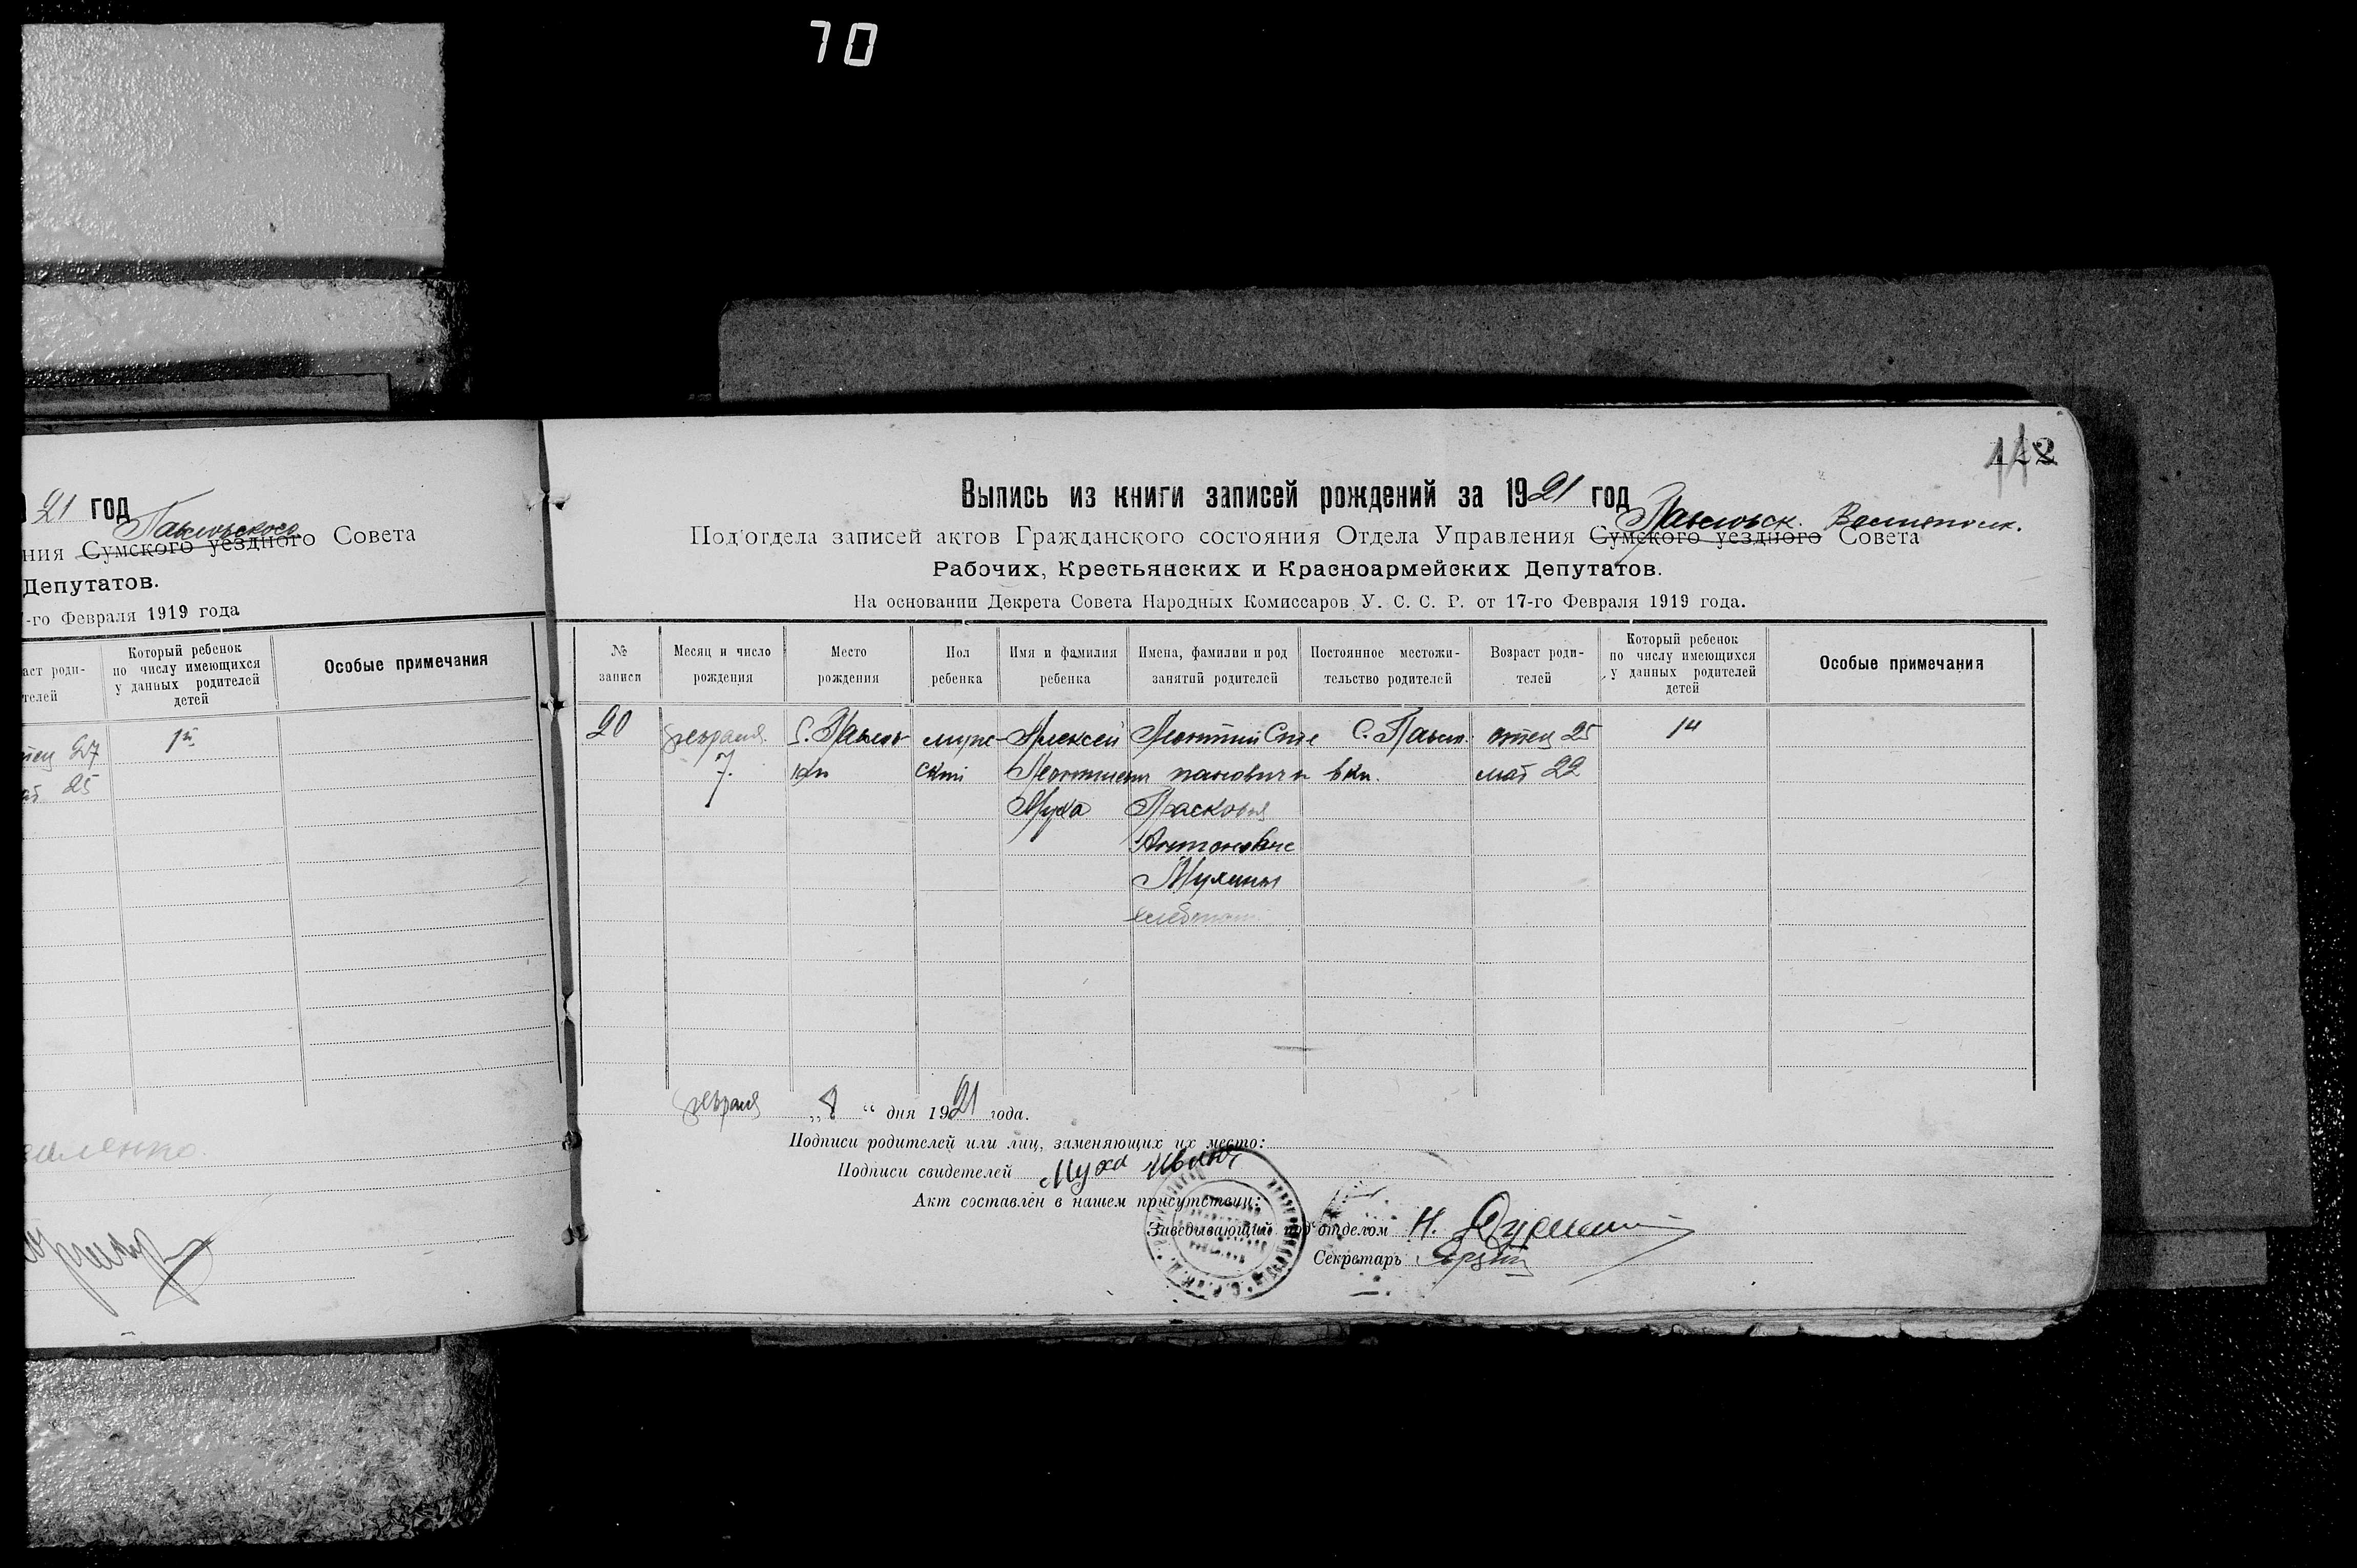 70
21 год
Павловского
ния Сумского уездного Совета
Депутатов.
-го Февраля 1919 года
аст роди-
телей
Который ребенок
по числу имеющихся
у данных родителей
детей
Особые примечания
27
1й
25
112
Выпись из книги записей рождений за 1921 год
Павловск. Волисполк.
Под'отдела записей актов Гражданского состояния Отдела Управления Сумского уездного Совета
Рабочих, Крестьянских и Красноармейских Депутатов.
На основании Декрета Совета Народных Комиссаров У. С. С. Р. от 17-го Февраля 1919 года.
№ записи
Месяц и число рождения
Место рождения
Пол ребенка
Имя и фамилия ребенка
Имена, фамилии и род занятий родителей
Постоянное местожи-
тельство родителей
Возраст роди-
телей
Который ребенок
по числу имеющихся
у данных родителей
детей
Особые примечания
20 февраля С. Павлов мужс- Алексей Леонтий Сте С. Павл. отец 25 1й
7. ки ский Леонтиевич пановичи вки. мат 22
Муха Прасковия
Антоновне
Мухины
февраля „8“ дня 1921 года.
Подписи родителей или лиц, заменяющих их место:
Подписи свидетелей Муха Иван
Акт составлен в нашем присутствии:
Заведывающий под'отделом Н.
Секретарь